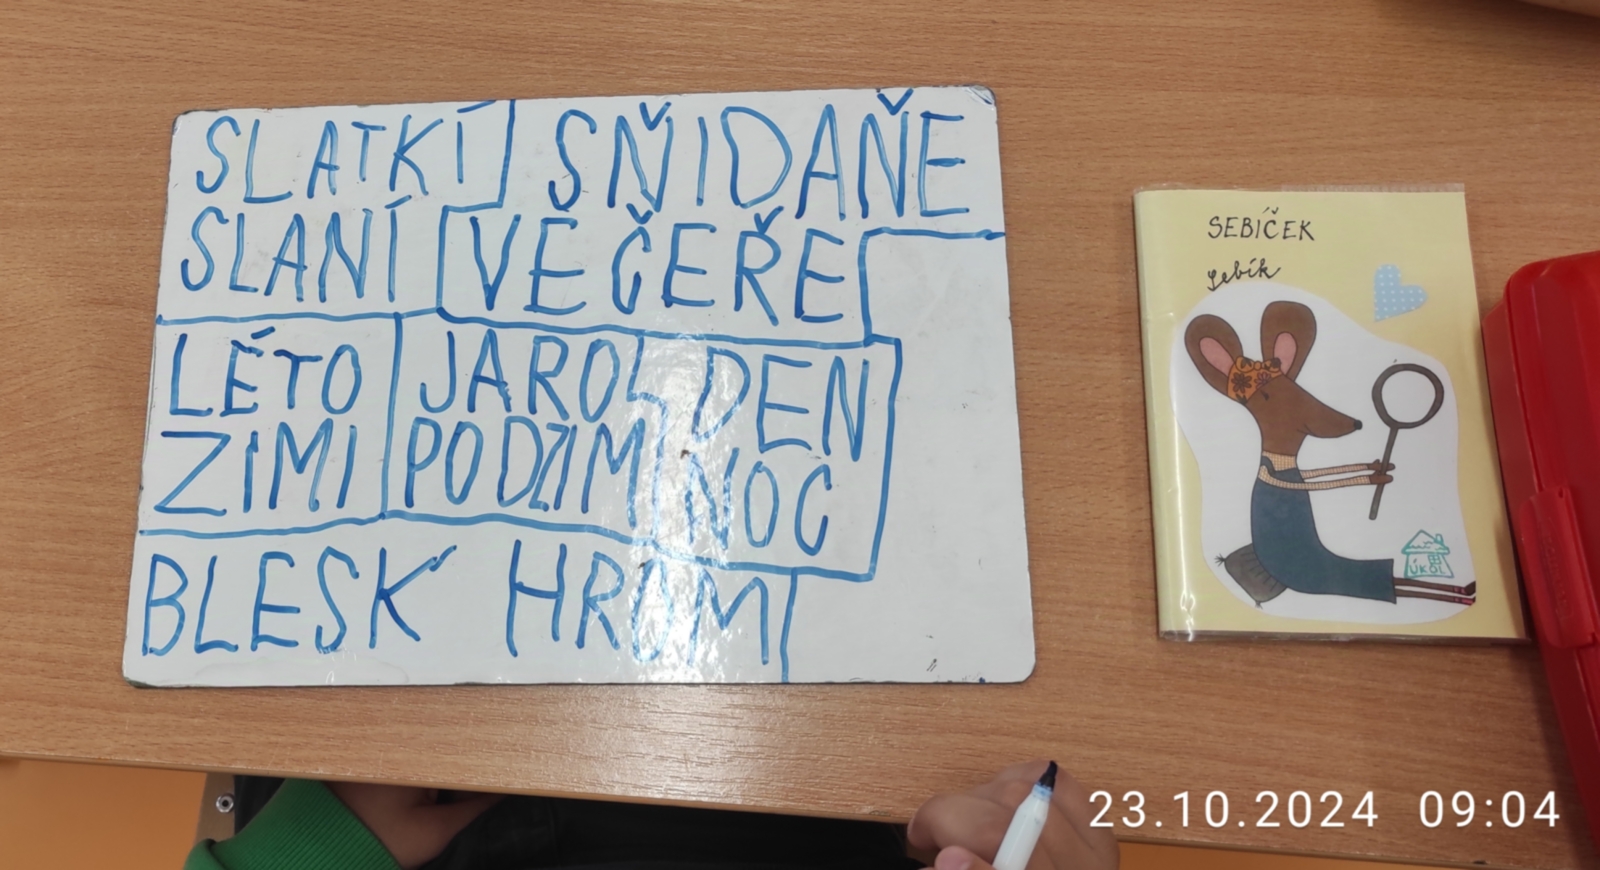 SLATKÍ SŇIDAŇE
SLANÍ VEČEŘE
LÉTO JARO DEN
ZIMI PODZIM NOC
BLESK HROM
SEBÍČEK
Sebík
ÚKOL
23.10.2024 09:04